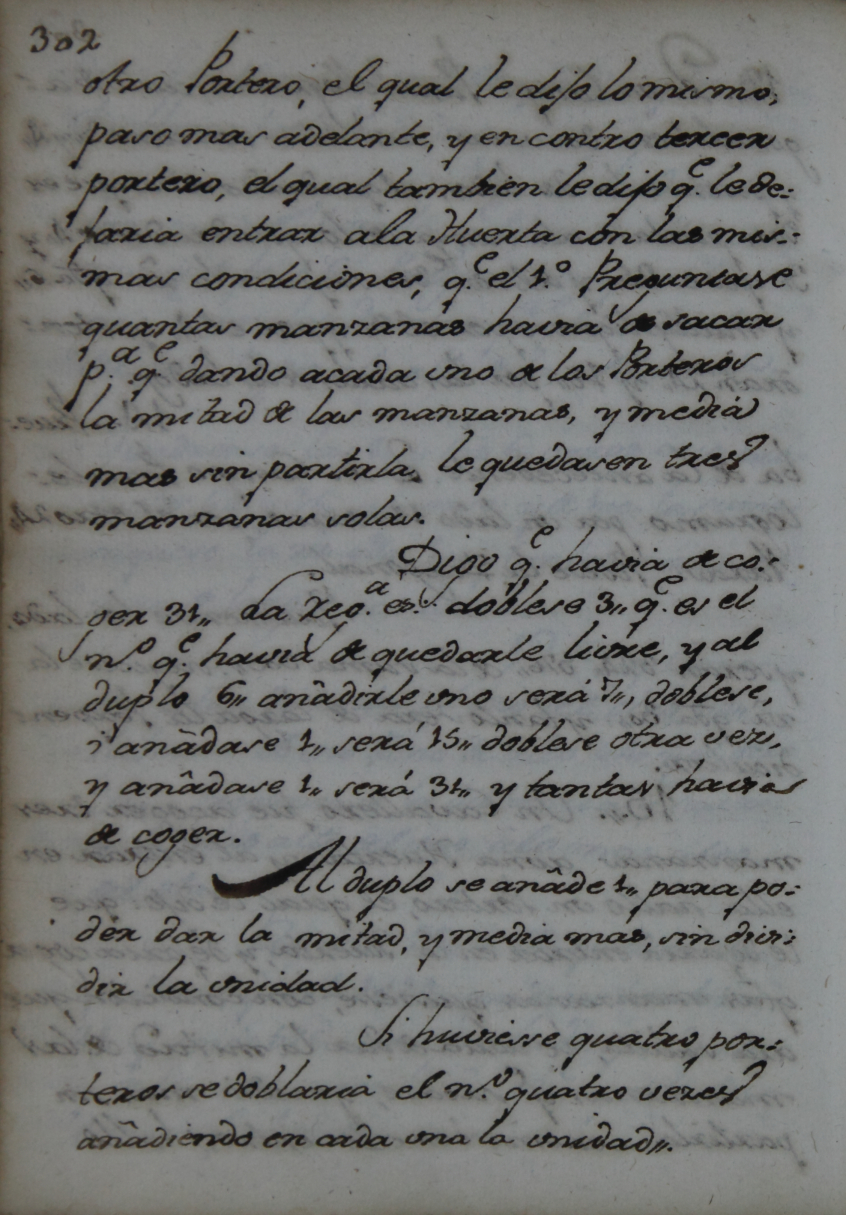 302
otro Portero, el qual le dijo lo mismo,
paso mas adelante, y encontro tercer
portero, el qual tambien le dijo q.e le de=
jaria entrar ala Huerta con las mis=
mas condiciones, q.e el 1.o Preguntase
quantas manzanas havia de sacar
p.a q.e dando acada vno de los Porteros
la mitad de las manzanas, y media
mas sin partirla, le quedasen tres
manzanas solas.
Digo q.e havia de co=
ger 31,, La reg.a es: doblese 3,, q.e es el
n.o q.e havia de quedarle livre, y al
duplo 6,, añadirle vno será 7,, doblese,
i añadase 1,, será 15,, doblese otra vez,
y añadase 1,, será 31,, y tantas havia
de coger.
Al duplo se añade 1,, para po=
der dar la mitad, y media mas, sin divi=
dir la vnidad.
Si huviesse quatro por=
teros se doblaria el n.o quatro vezes
añadiendo en cada vna la vnidad,,.